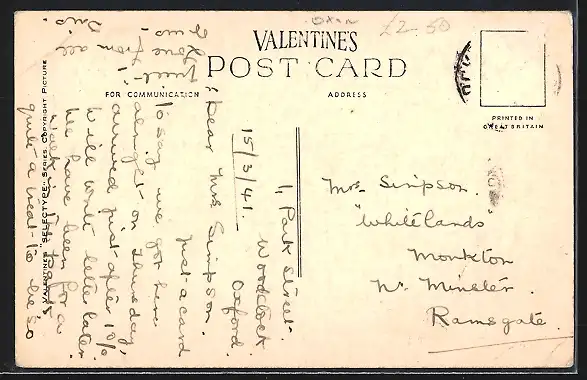 Oxon
£2-50
VALENTINE'S
POST CARD
FOR COMMUNICATION
ADDRESS
PRINTED IN
GREAT BRITAIN
"VALENTINES" "SELECTYPE" SERIES. COPYRIGHT PICTURE
1, Park Street.
Woodstock
Oxford.
15/3/41.
Dear Mrs Simpson.
Just a card
to say we got here
alright on Thursday,
arrived just after
will write letter later.
We have been for a
walk
quite a treat - to be so
Love from all
Mrs Simpson.
"Whitelands"
Monkton
Nr. Minster.
Ramsgate.